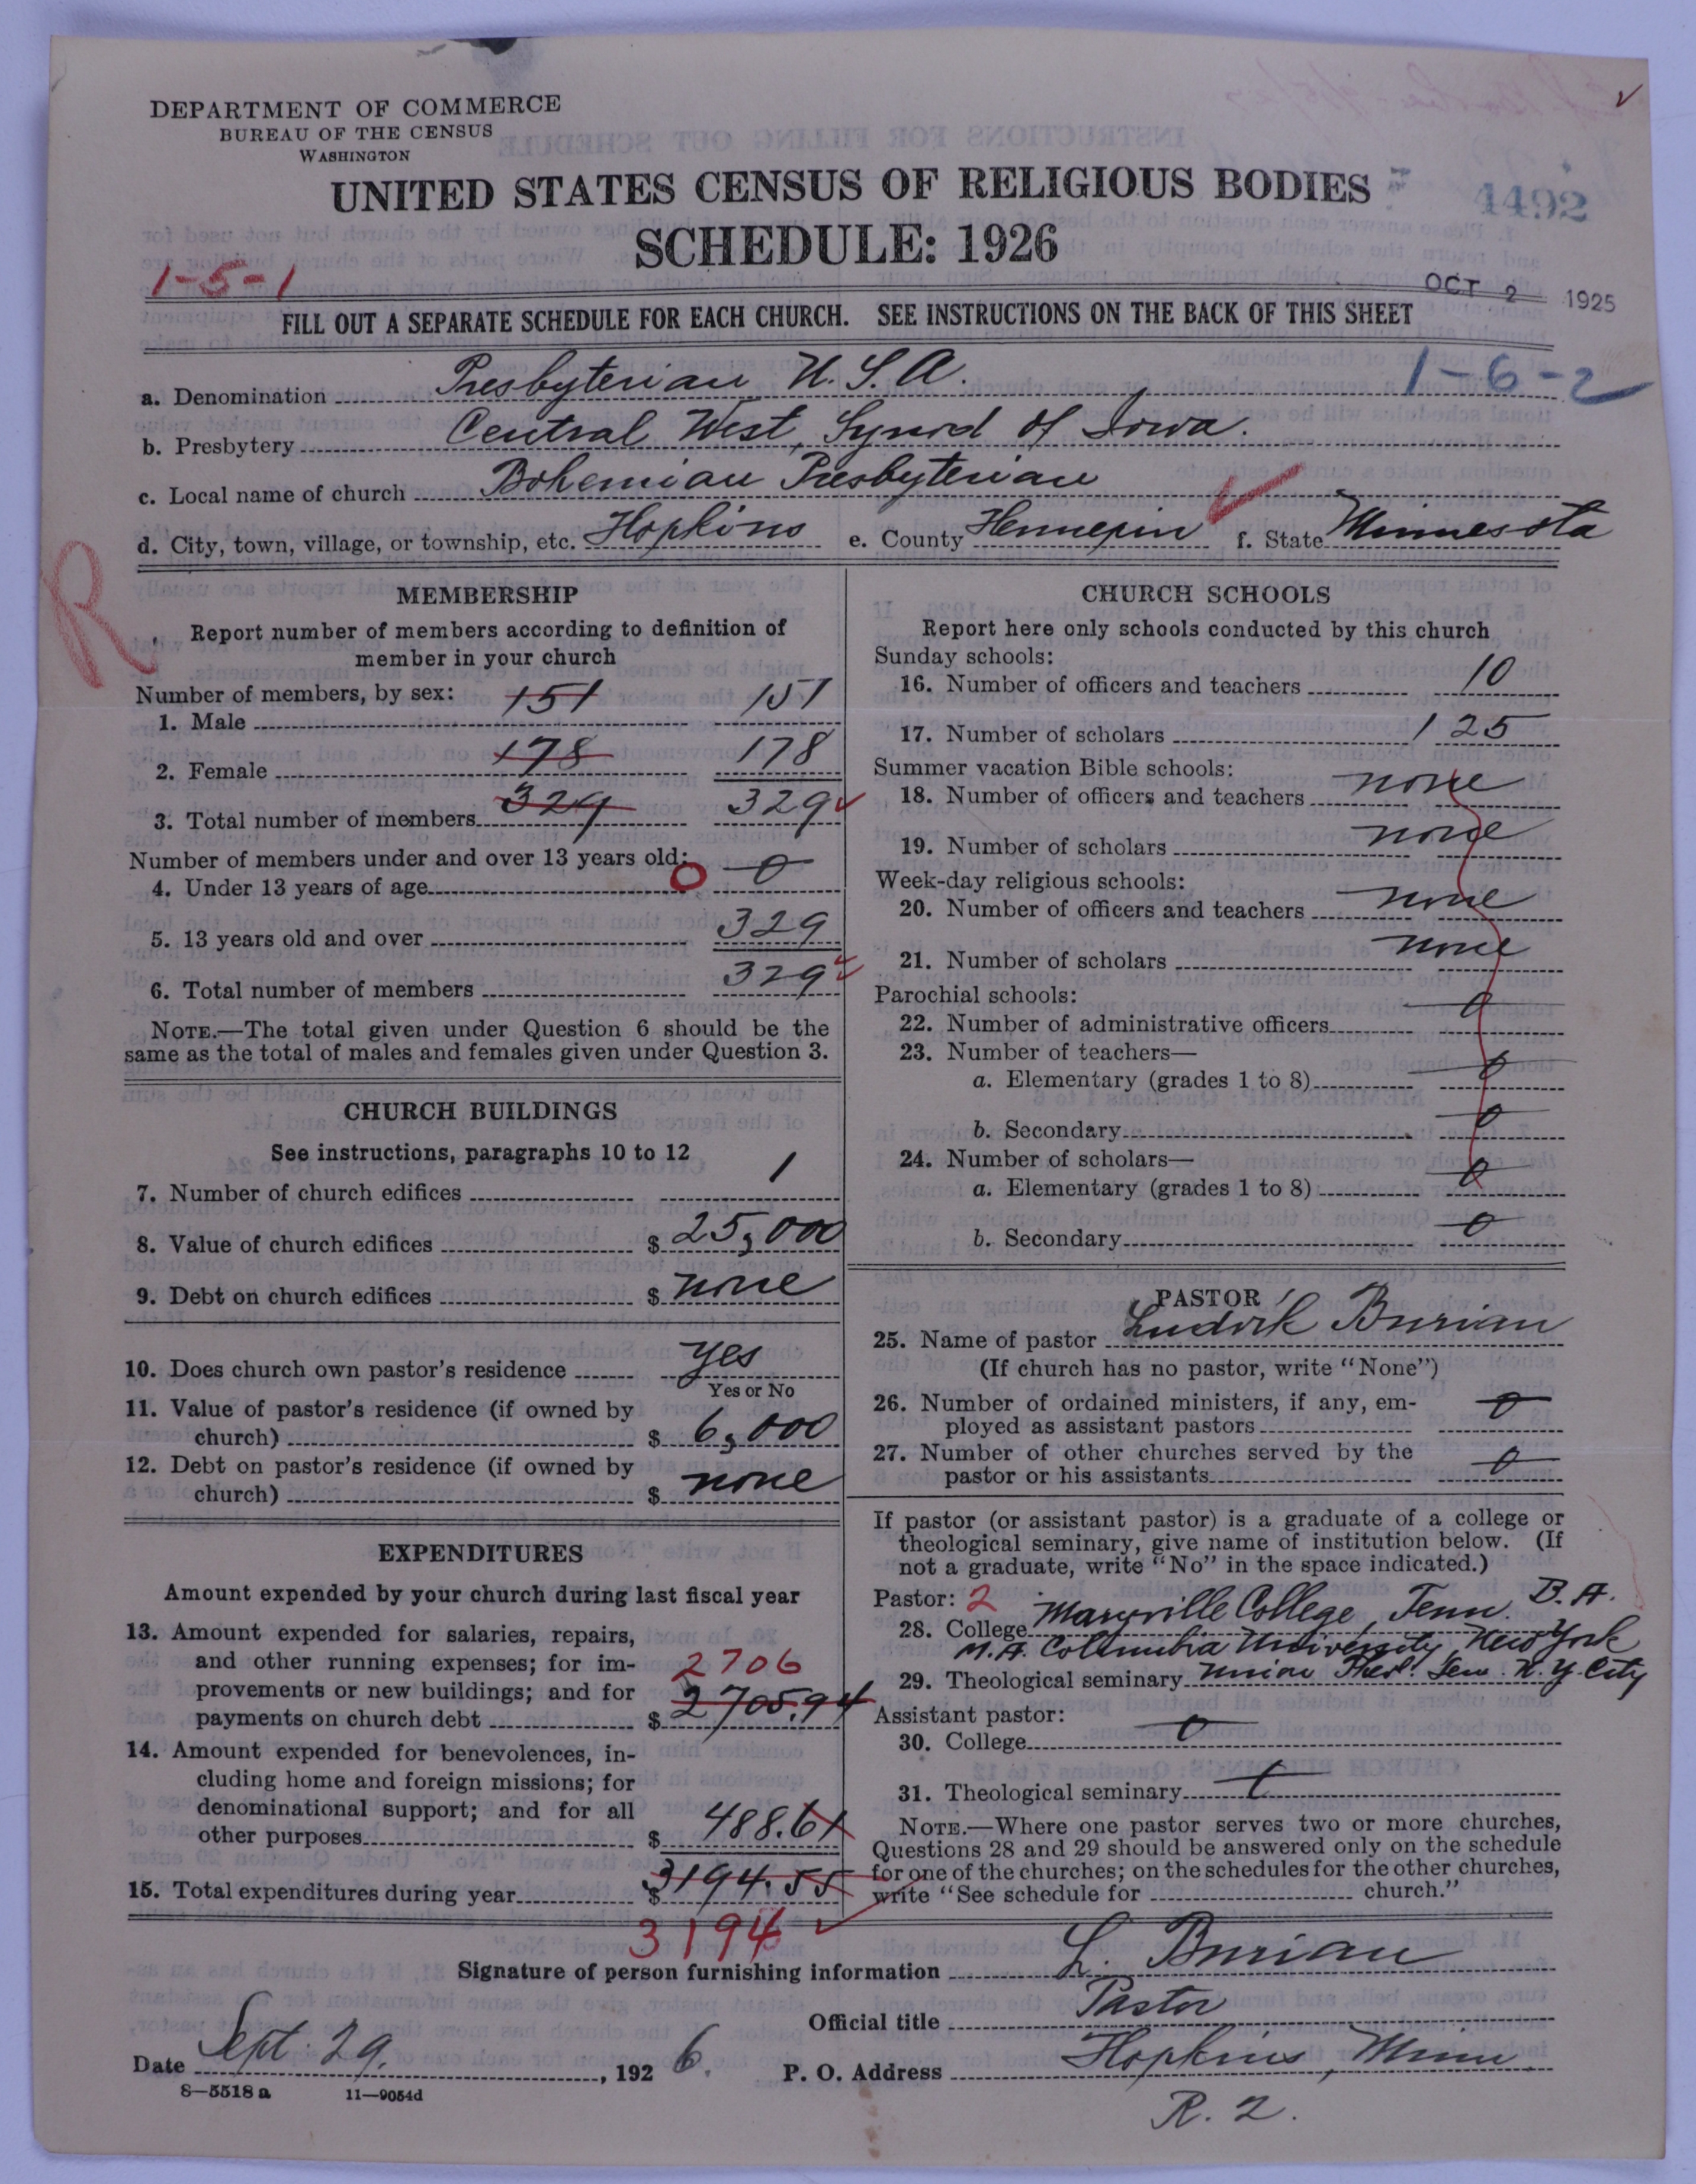 DEPARTMENT OF COMMERCE
BUREAU OF THE CENSUS
WASHINGTON
UNITED STATES CENSUS OF RELIGIOUS BODIES
4492
SCHEDULE: 1926
1-5-1
OCT 2 1925
FILL OUT A SEPARATE SCHEDULE FOR EACH CHURCH. SEE INSTRUCTIONS ON THE BACK OF THIS SHEET
1-6-2
a. Denomination Presbyterian U.S.A.
b. Presbytery Central West, Synod of Iowa.
c. Local name of church Bohemian Presbyterian
d. City, town, village, or township, etc. Hopkins e. County Hennepin f. State Minnesota
R
MEMBERSHIP
Report number of members according to definition of
member in your church
Number of members, by sex:
1. Male 151 151
2. Female 178 178
3. Total number of members 329 329
Number of members under and over 13 years old:
4. Under 13 years of age 0 0
5. 13 years old and over 329
6. Total number of members 329
NOTE.—The total given under Question 6 should be the
same as the total of males and females given under Question 3.
CHURCH BUILDINGS
See instructions, paragraphs 10 to 12
7. Number of church edifices 1
8. Value of church edifices $ 25,000
9. Debt on church edifices $ none
10. Does church own pastor's residence yes
Yes or No
11. Value of pastor's residence (if owned by
church) $ 6,000
12. Debt on pastor's residence (if owned by
church) $ none
EXPENDITURES
Amount expended by your church during last fiscal year
13. Amount expended for salaries, repairs,
and other running expenses; for im-
provements or new buildings; and for 2706
payments on church debt $ 2705.94
14. Amount expended for benevolences, in-
cluding home and foreign missions; for
denominational support; and for all
other purposes $ 488.61
15. Total expenditures during year $ 3194.55
3194
CHURCH SCHOOLS
Report here only schools conducted by this church
Sunday schools:
16. Number of officers and teachers 10
17. Number of scholars 125
Summer vacation Bible schools:
18. Number of officers and teachers none
19. Number of scholars none
Week-day religious schools:
20. Number of officers and teachers none
21. Number of scholars none
Parochial schools:
22. Number of administrative officers 0
23. Number of teachers—
a. Elementary (grades 1 to 8) 0
b. Secondary 0
24. Number of scholars—
a. Elementary (grades 1 to 8) 0
b. Secondary 0
PASTOR
25. Name of pastor Ludvik Burian
(If church has no pastor, write "None")
26. Number of ordained ministers, if any, em-
ployed as assistant pastors 0
27. Number of other churches served by the
pastor or his assistants 0
If pastor (or assistant pastor) is a graduate of a college or
theological seminary, give name of institution below. (If
not a graduate, write "No" in the space indicated.)
Pastor: 2
28. College Maryville College, Tenn. B.A.
M.A. Columbia University, New York
29. Theological seminary Union Theol. Sem. N.Y. City
Assistant pastor:
30. College 0
31. Theological seminary
NOTE.—Where one pastor serves two or more churches,
Questions 28 and 29 should be answered only on the schedule
for one of the churches; on the schedules for the other churches,
write "See schedule for church."
Signature of person furnishing information L. Burian
Official title Pastor
Date Sept. 29, 1926. P. O. Address Hopkins, Minn.
8—5518 a 11—9054d
R. 2.